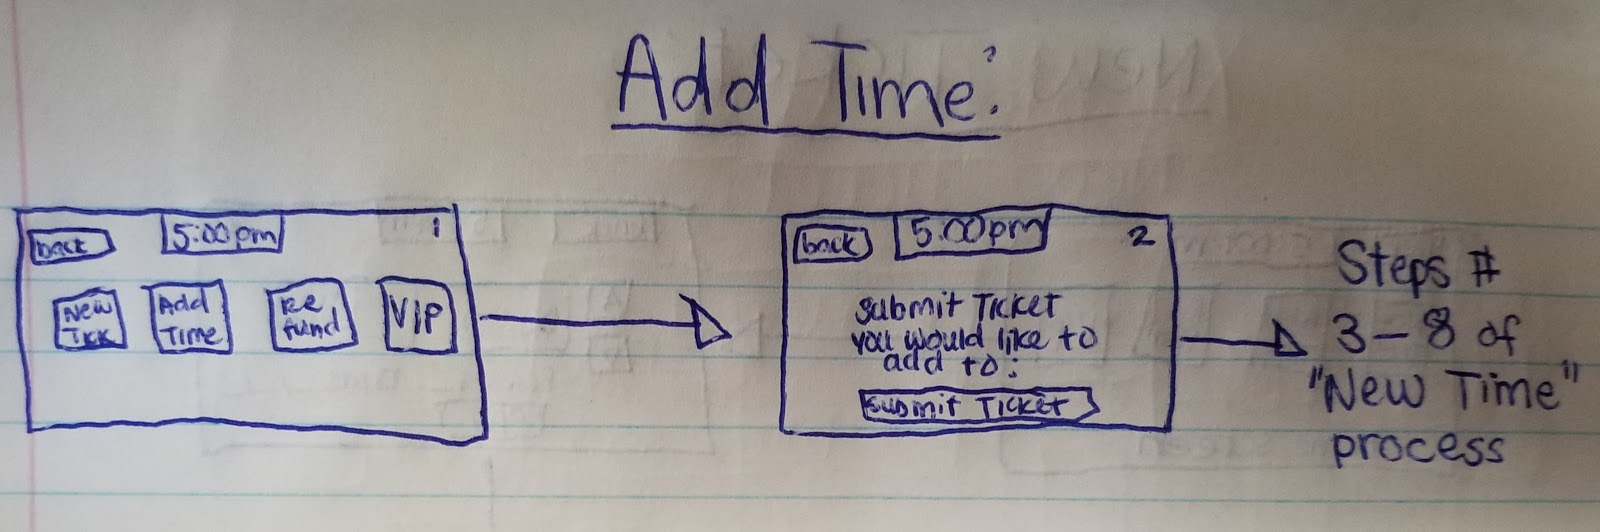 Add Time:
back
5:00pm
1
New
Tick
Add
Time
Re
fund
VIP
back
5:00pm
2
submit Ticket
you would like to
add to:
submit Ticket
Steps #
3-8 of
"New Time"
process